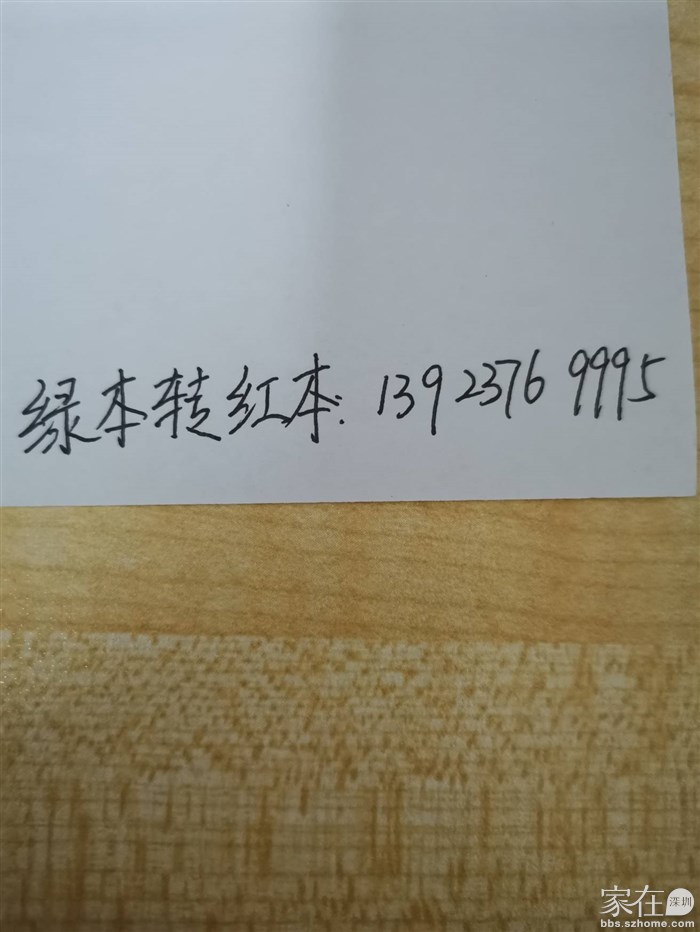 绿本转红本: 13923769995
家在深圳
bbs.szhome.com